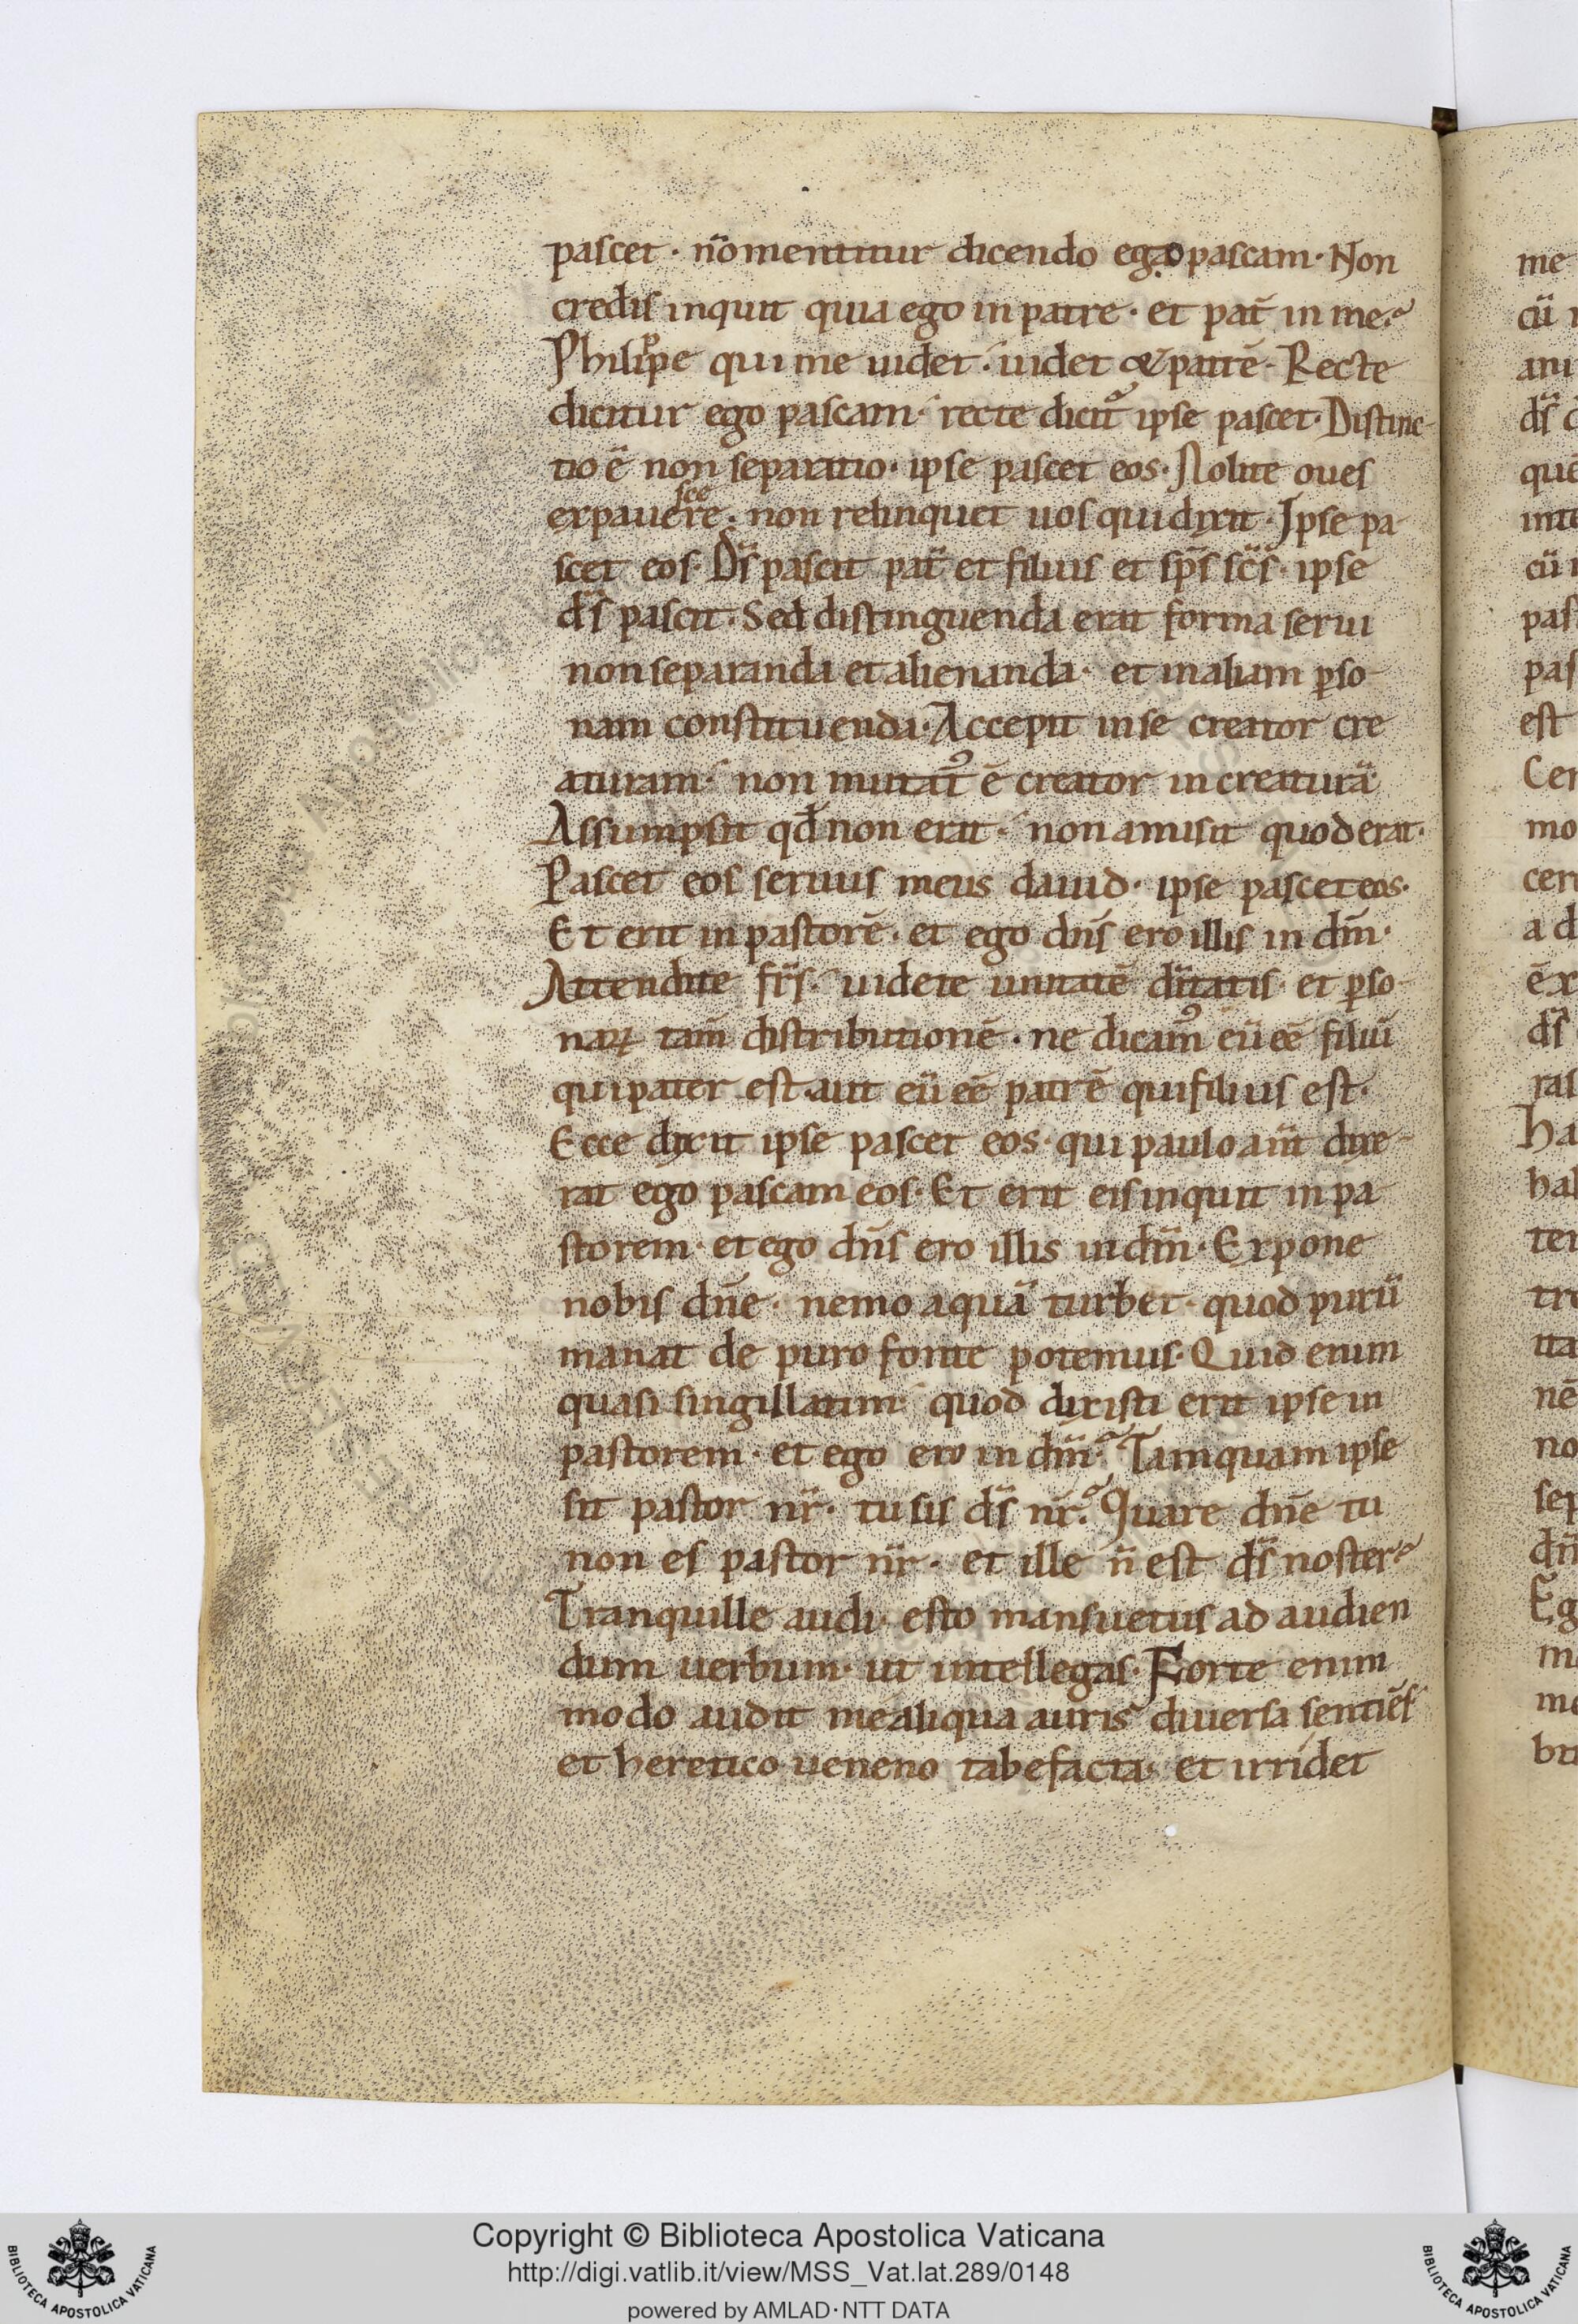 pascet · n̄ omentitur dicendo ego pascam · Non
credis inquit quia ego in patre · et pat̄ in me?
Philippe qui me uidet · uidet & patrē · Recte
dicitur ego pascam · recte dicit᷑ ipse pascet · Distinc-
tio ē non separatio · ipse pascet eos · Nolite oues
expauescere · non relinquet uos qui dixit · Ipse pa-
scet eos · D̄s pascit pat̄ et filius et sp̄s sc̄s · ipse
d̄s pascit · Sed distinguenda erat forma serui
non separanda et alienanda · et in aliam ꝑso-
nam constituenda · Accepit in se creator cre
aturam · non mutat᷒ ē creator in creaturā ·
Assumpsit qđ non erat · non amisit quod erat ·
Pascet eos seruus meus dauid · ipse pascet eos ·
Et erit in pastorē · et ego dn̄s ero illis in dm̄ ·
Attendite fr̄s · uidete unitatē di̅tatis · et ꝑso-
naꝝ tam̄ distributionē · ne dicam᷒ eū ee̅ filiū
qui pater est · aut eū ee̅ patrē qui filius est ·
Ecce dixit ipse pascet eos · qui paulo an̄t dixe-
rat ego pascam eos · Et erit eis inquit in pa
storem · et ego dn̄s ero illis in dm̄ · Expone
nobis dn̄e · nemo aquā turbet · quod purū
manat de puro fonte potemus · Quid enim
quasi singillatim · quod dixisti erit ipse in
pastorem · et ego ero in dm̄? Tamquam ipse
sit pastor nr̄ · tu sis d̄s nr̄? Quare dn̄e tu
non es pastor nr̄ · et ille n̄ est d̄s noster?
Tranquille audi · esto mansuetus ad audien
dum uerbum · ut intellegas · Forte enim
modo audit me aliqua auris diuersa sentiēs
et heretico ueneno tabefacta · et irridet
me
cū
ani
d̄s
quē
inte
cū
pas
pas
est
Cer
mo
cer
a d
ē x
d̄s
ras
ha
hab
ter
tr
ita
nē
no
sep
dn̄
Eg
m
me
bu
Copyright © Biblioteca Apostolica Vaticana
http://digi.vatlib.it/view/MSS_Vat.lat.289/0148
powered by AMLAD·NTT DATA
BIBLIOTECA APOSTOLICA VATICANA
BIBLIOTECA APOSTOLICA VATICANA